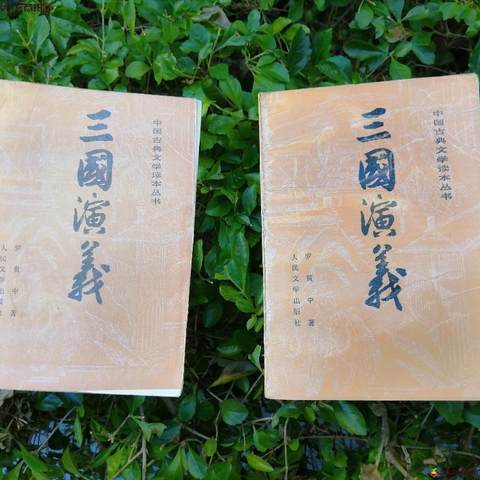 中国古典文学读本丛书
三國演義
罗贯中著
人民文学出版社
中国古典文学读本丛书
三國演義
罗贯中著
人民文学出版社